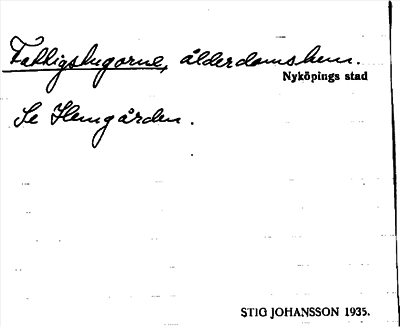 Fattigstugorne, ålderdomshem.
Nyköpings stad
Se Hemgården.
STIG JOHANSSON 1935.